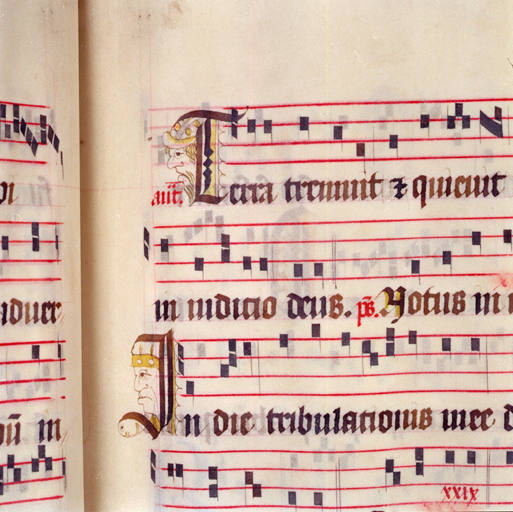 añt. Terra tremuit ⁊ quieuit
in iudicio deus. ps. Notus in i
In die tribulationis mee d
xxix